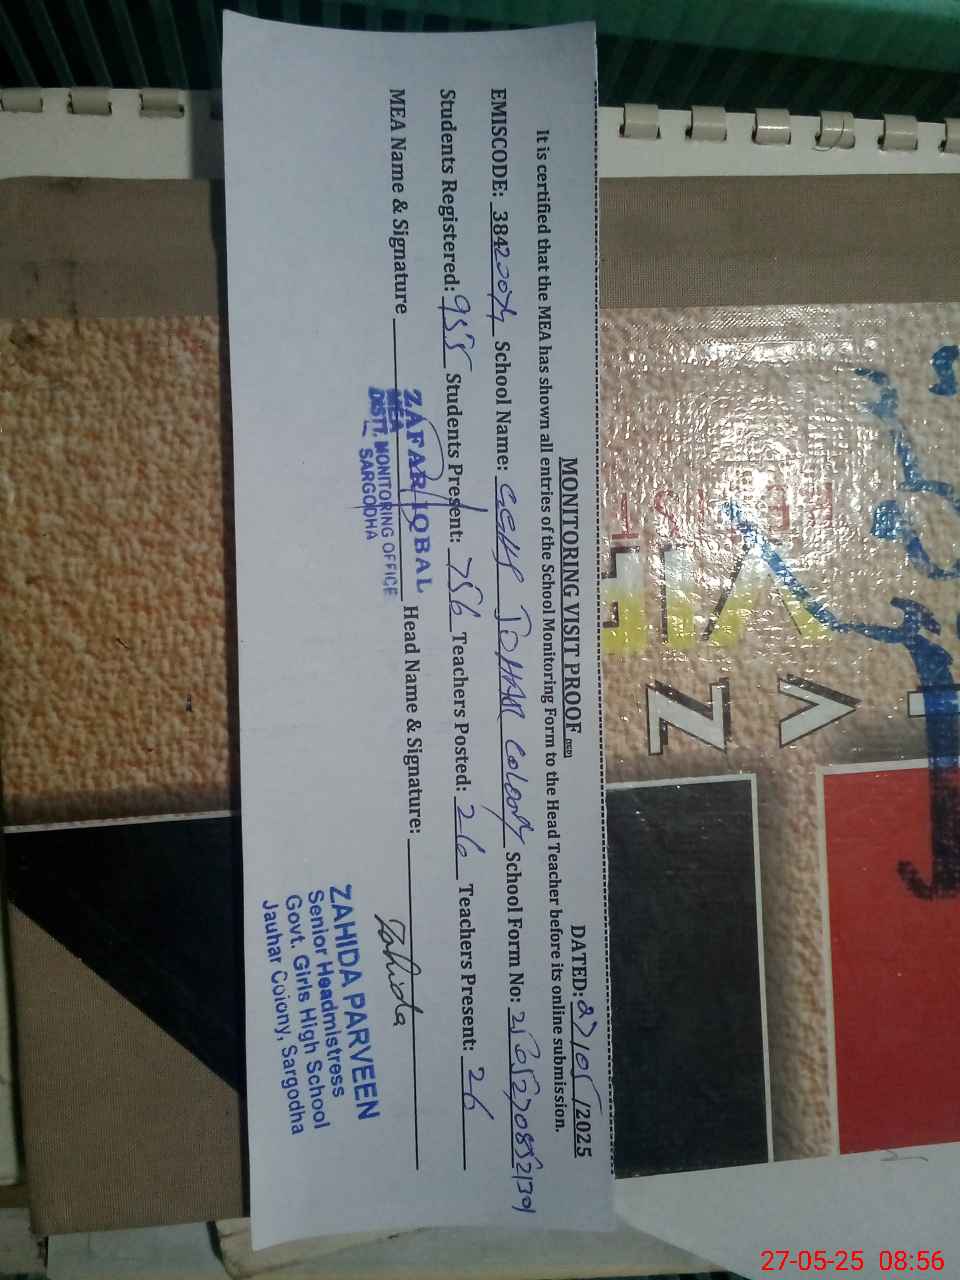 MONITORING VISIT PROOF
DATED: 27/05/2025
It is certified that the MEA has shown all entries of the School Monitoring Form to the Head Teacher before its online submission.
EMISCODE: 38420074 School Name: GGHS JOHAR Colony School Form No:
Students Registered: 955 Students Present: 756 Teachers Posted: 26 Teachers Present: 26
MEA Name & Signature Head Name & Signature: Zahida
ZAFAR IQBAL
MEA
DISTT. MONITORING OFFICE
SARGODHA
ZAHIDA PARVEEN
Senior Headmistress
Govt. Girls High School
Jauhar Colony, Sargodha
27-05-25 08:56